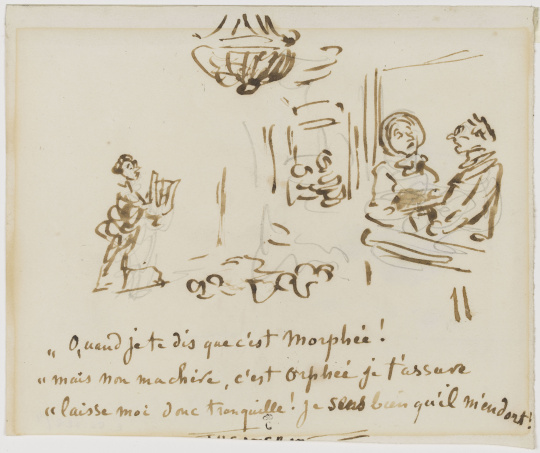 „ Quand je te dis que c'est Morphée !
„ mais non ma chère, c'est Orphée je t'assure
„ laisse moi donc tranquille ! je sens bien qu'il m'endort !